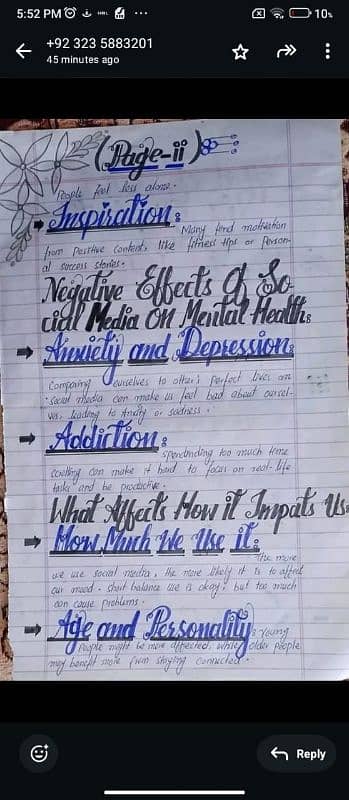 5:52 PM
10%
+92 323 5883201
45 minutes ago
(Page-ii)
People feel less alone.
Inspiration:
Many find motivation
from positive content, like fitness tips or person-
al success stories.
Negative Effects Of So
cial Media On Mental Health:
Anxiety and Depression:
Comparing ourselves to other's perfect lives on
social media can make us feel bad about oursel-
ves, leading to Anxity or sadness.
Addiction:
spendinding too much time
scrolling can make it hard to focus on real-life
tasks and be productive.
What Affects How it Impats Us
How Much We Use it:
The more
we use social media, the more likely it is to affect
our mood. short balance use is okay, but too much
can cause problems.
Age and Personality: young
People might be more affected, while older people
may benefit more from staying connected.
Reply